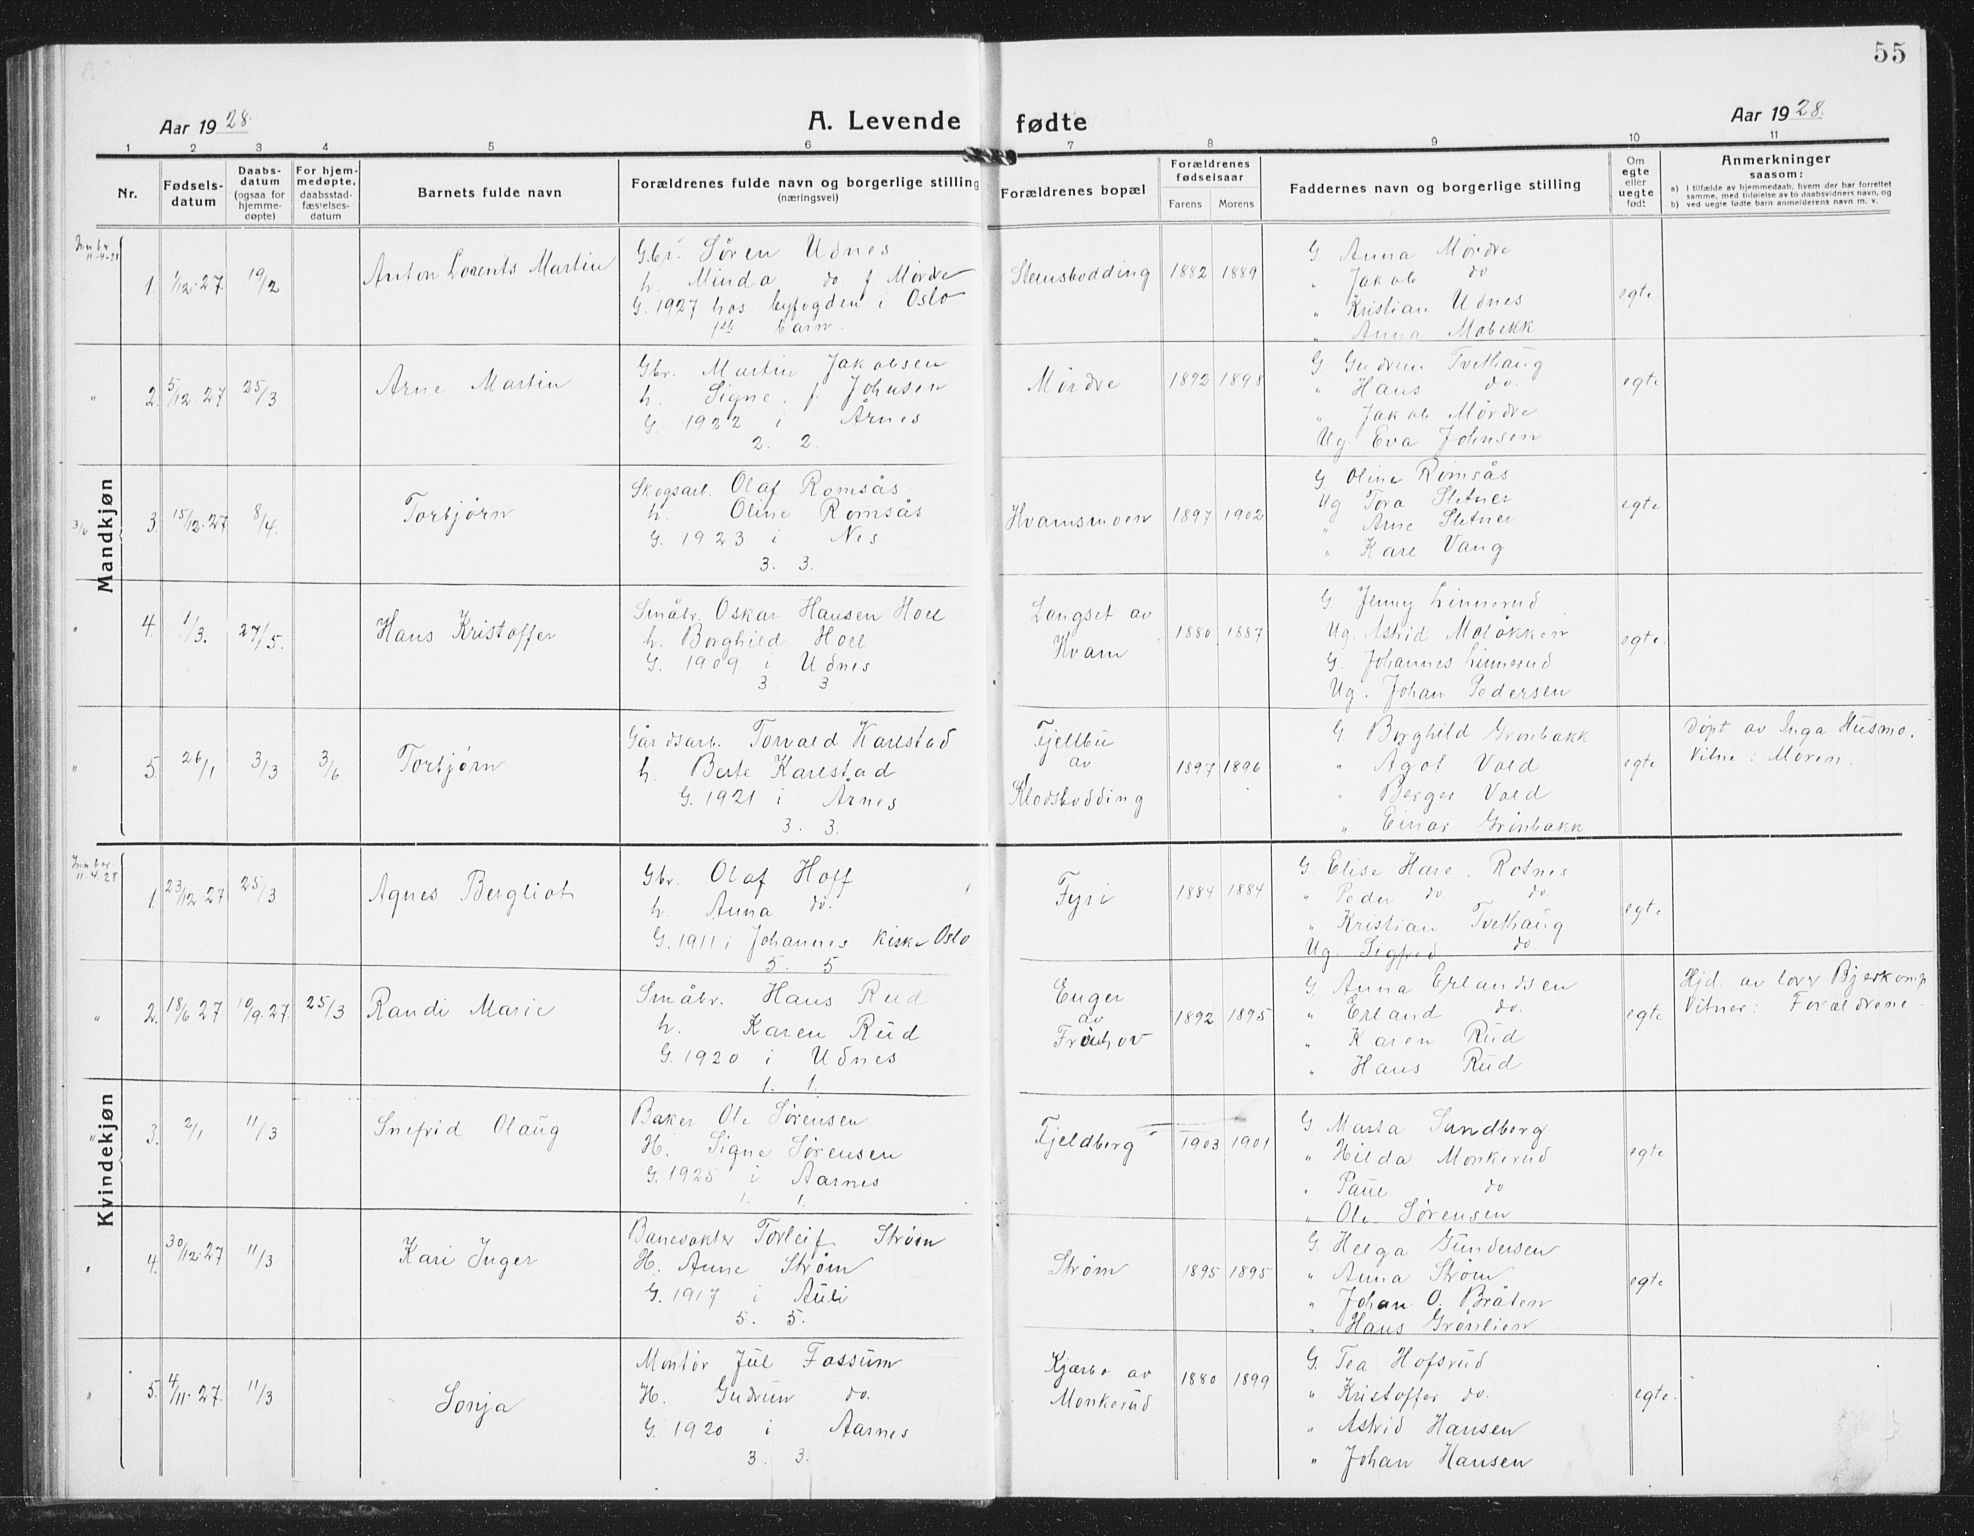 55
Aar 1928.
A. Levende fødte
Aar 1928.
1 2 3 4 5 6 7 8 9 10 11
Nr.
Fødselsdatum
Daabsdatum (ogsaa for hjemmedøpte)
For hjemmedøpte, daabsstadfæstelsesdatum
Barnets fulde navn
Forældrenes fulde navn og borgerlige stilling (næringsvei)
Forældrenes bopæl
Forældrenes fødselsaar
Farens Morens
Faddernes navn og borgerlige stilling
Om egte eller uegte født
Anmerkninger saasom:
a) i tilfælde av hjemmedaab, hvem der har forrettet samme, med tilføielse av to daabsvidners navn, og
b) ved uegte fødte barn anmelderens navn m. v.
Mandkjøn
Innbr. 11-4-28
1. 1/12-27. 19/2 Anton Lorents Martin
Gbr. Søren Udnes
h. Minda do f. Mørdre
G. 1927 hos byfogden i Oslo
1ste barn.
Stensbødding 1882 1889
G Anna Mørdre
" Jakob do
" Kristian Udnes
" Anna Mobekk
egte
" 2. 5/12-27 25/3 Arne Martin
Gbr. Martin Jakobsen
h. Signe, f. Johnsen
G. 1922 i Årnes
2. 2.
Mørdre 1892 1898
G Gudrun Tvethaug
" Hans do.
" Jakob Mørdre
Ug. Eva Johnsen
egte
3/6 3. 15/12-27 8/4. Torbjørn
Skogsarb. Olaf Romsås
h. Oline Romsås
G. 1923 i Nes
3. 3.
Hvamsmoen 1897 1902
G Oline Romsås
Ug Tora Sletner
" Arne Sletner
" Kare Vang
egte
" 4. 1/3. 27/5. Hans Kristoffer
Småbr. Oskar Hansen Hoel
h. Borghild Hoel
G. 1909 i Udnes
3. 3
Langset av
Hvam
1880 1887
G. Jenny Linnerud
Ug. Astrid Moløkken
G. Johannes Linnerud
Ug. Johan Pedersen
egte.
" 5. 26/1 3/3 3/6 Torbjørn
Gårdsarb. Torvald Karlstad
h. Berte Karlstad
G. 1921 i Årnes
3. 3.
Fjellbu
av
Klodsbødding
1897 1896
G Borghild Grønbakk
" Ågot Vold
" Berger Vold
" Einar Grønbakk
egte
Døpt av Inga Husmo.
Vitne: Moren.
Kvindekjøn
Innber. 11-4-28
1. 23/12 27 25/3 Agnes Bergliot
Gbr. Olaf Hoff
h. Anna do.
G. 1911 i Johannes kirke Oslo
5. 5
Fyri 1884 1884
G. Elise Hare, Rotnes
" Peder do. do.
" Kristian Tvethaug
Ug. Sigfred do
egte
" 2. 18/6 27 10/9.27. 25/3 Randi Marie
Småbr. Hans Rud
h. Karen Rud
G. 1920 i Udnes
1. 1.
Enger
av
Frøihov
1892 1895
G. Anna Erlandsen
" Erland do.
" Karen Rud
" Hans Rud
egte
Hjd. av lærer Bjerkomp
Vitner: Forældrene.
" 3. 2/1 11/3 Snefrid Olaug
Baker Ole Sørensen
H. Signe Sørensen
G. 1925 i Aarnes
1. 1.
Fjeldberg 1903 1901
G. Marta Sandberg
" Hilda Monkerud
" Paul do
" Ole Sørensen
egte
" 4. 30/12-27 11/3 Kari Inger
Banevakter Torleif Strøm
H. Anne Strøm
G. 1917 i Auli
5. 5.
Strøm 1895 1895
G. Helga Gundersen
" Anna Strøm
" Johan O. Bråten
" Hans Grønlien
egte
" 5. 4/11-27. 11/3 Sonja
Montør Jul Fossum
H. Gudrun do.
G. 1920 i Aarnes
3. 3.
Kjærbo av
Monkerud
1880 1899
G. Tea Hofsrud
" Kristoffer do.
" Astrid Hansen
" Johan Hansen
egte.